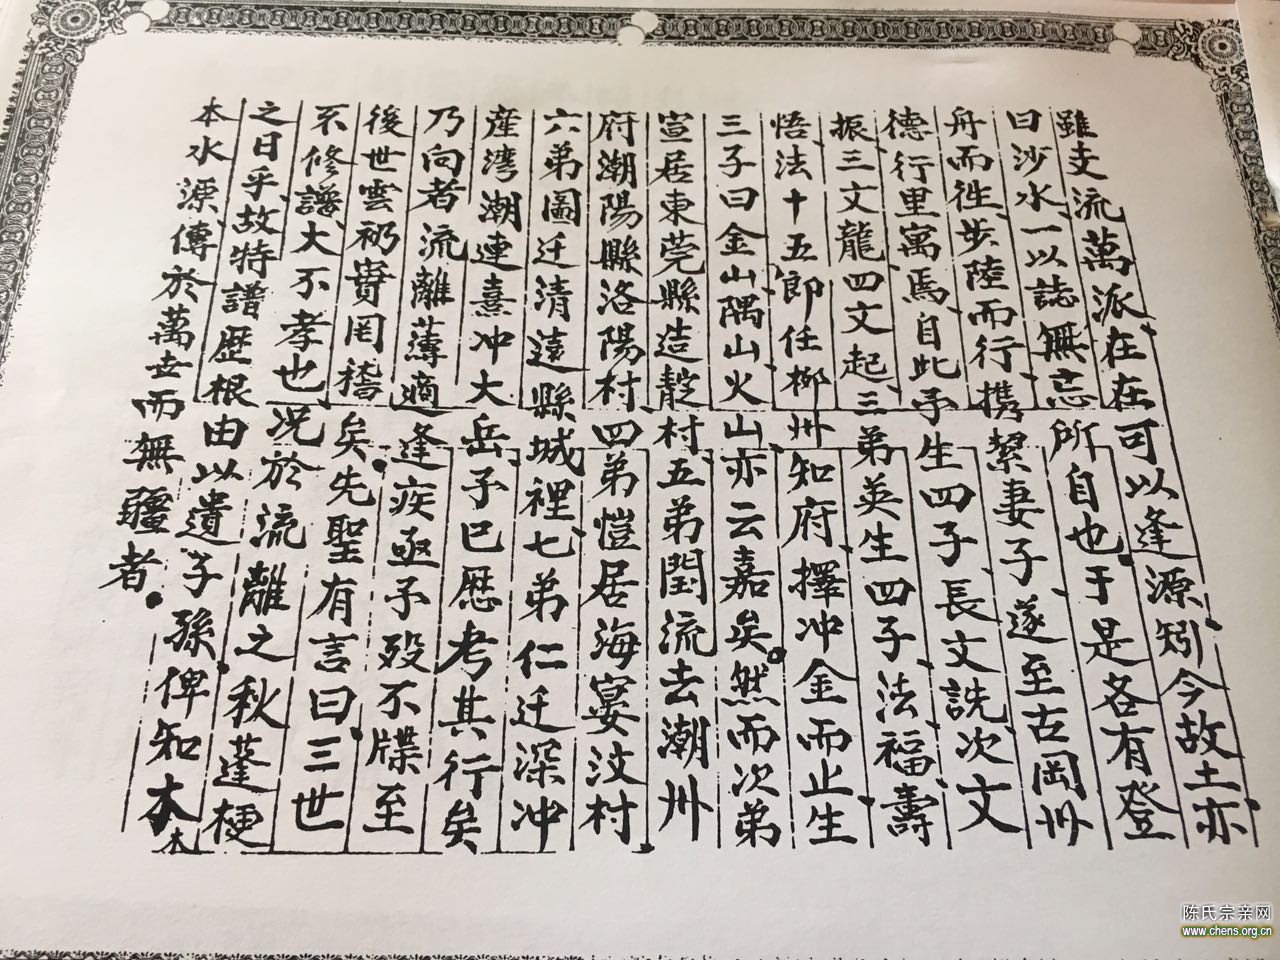 雖支流萬派在在可以逢源矧今故土亦
曰沙水一以誌無忘所自也于是各有登
舟而徃步陸而行携絜妻子遂至古岡州
德行里寓焉自此子生四子長文詵次文
振三文龍四文起三弟英生四子法福壽
悟法十五郎任柳州知府擇冲金而止生
三子曰金山隅山火山亦云嘉矣然而次弟
宣居東莞縣造靛村五弟閏流去潮州
府潮陽縣洛陽村四弟愷居海宴汶村
六弟圖迁清遠縣城裡七弟仁迁深冲
産湾潮連熹冲大岳子巳歷考其行矣
乃向者流離薄適逢疾亟子殁不牒至
後世雲礽實罔稽矣先聖有言曰三世
不修譜大不孝也况於流離之秋蓬梗
之日乎故特譜歷根由以遺子孫俾知木本
本水源傳於萬世而無疆者
陈氏宗亲网
www.chens.org.cn